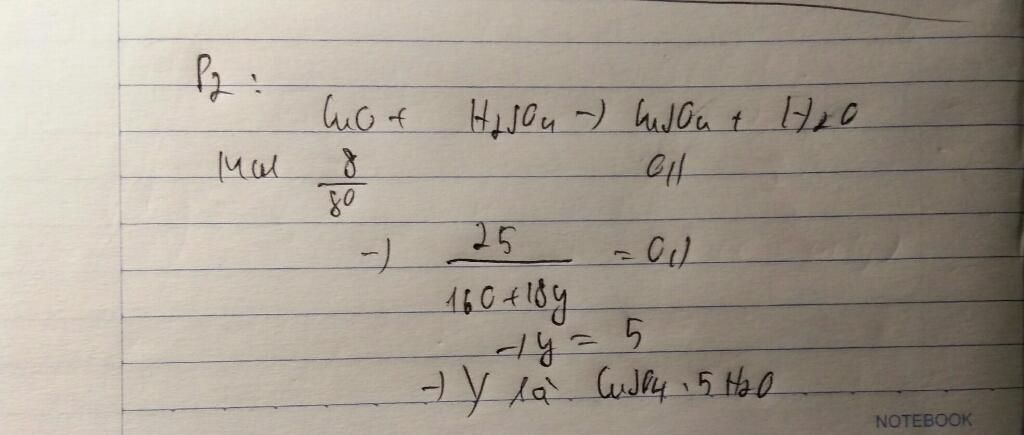 P2 :
CuO + H2SO4 -> CuSO4 + H2O
Mol 8/80 0,1
-> 25/(160+18y) = 0,1
-> y = 5
-> Y là CuSO4 . 5 H2O
NOTEBOOK